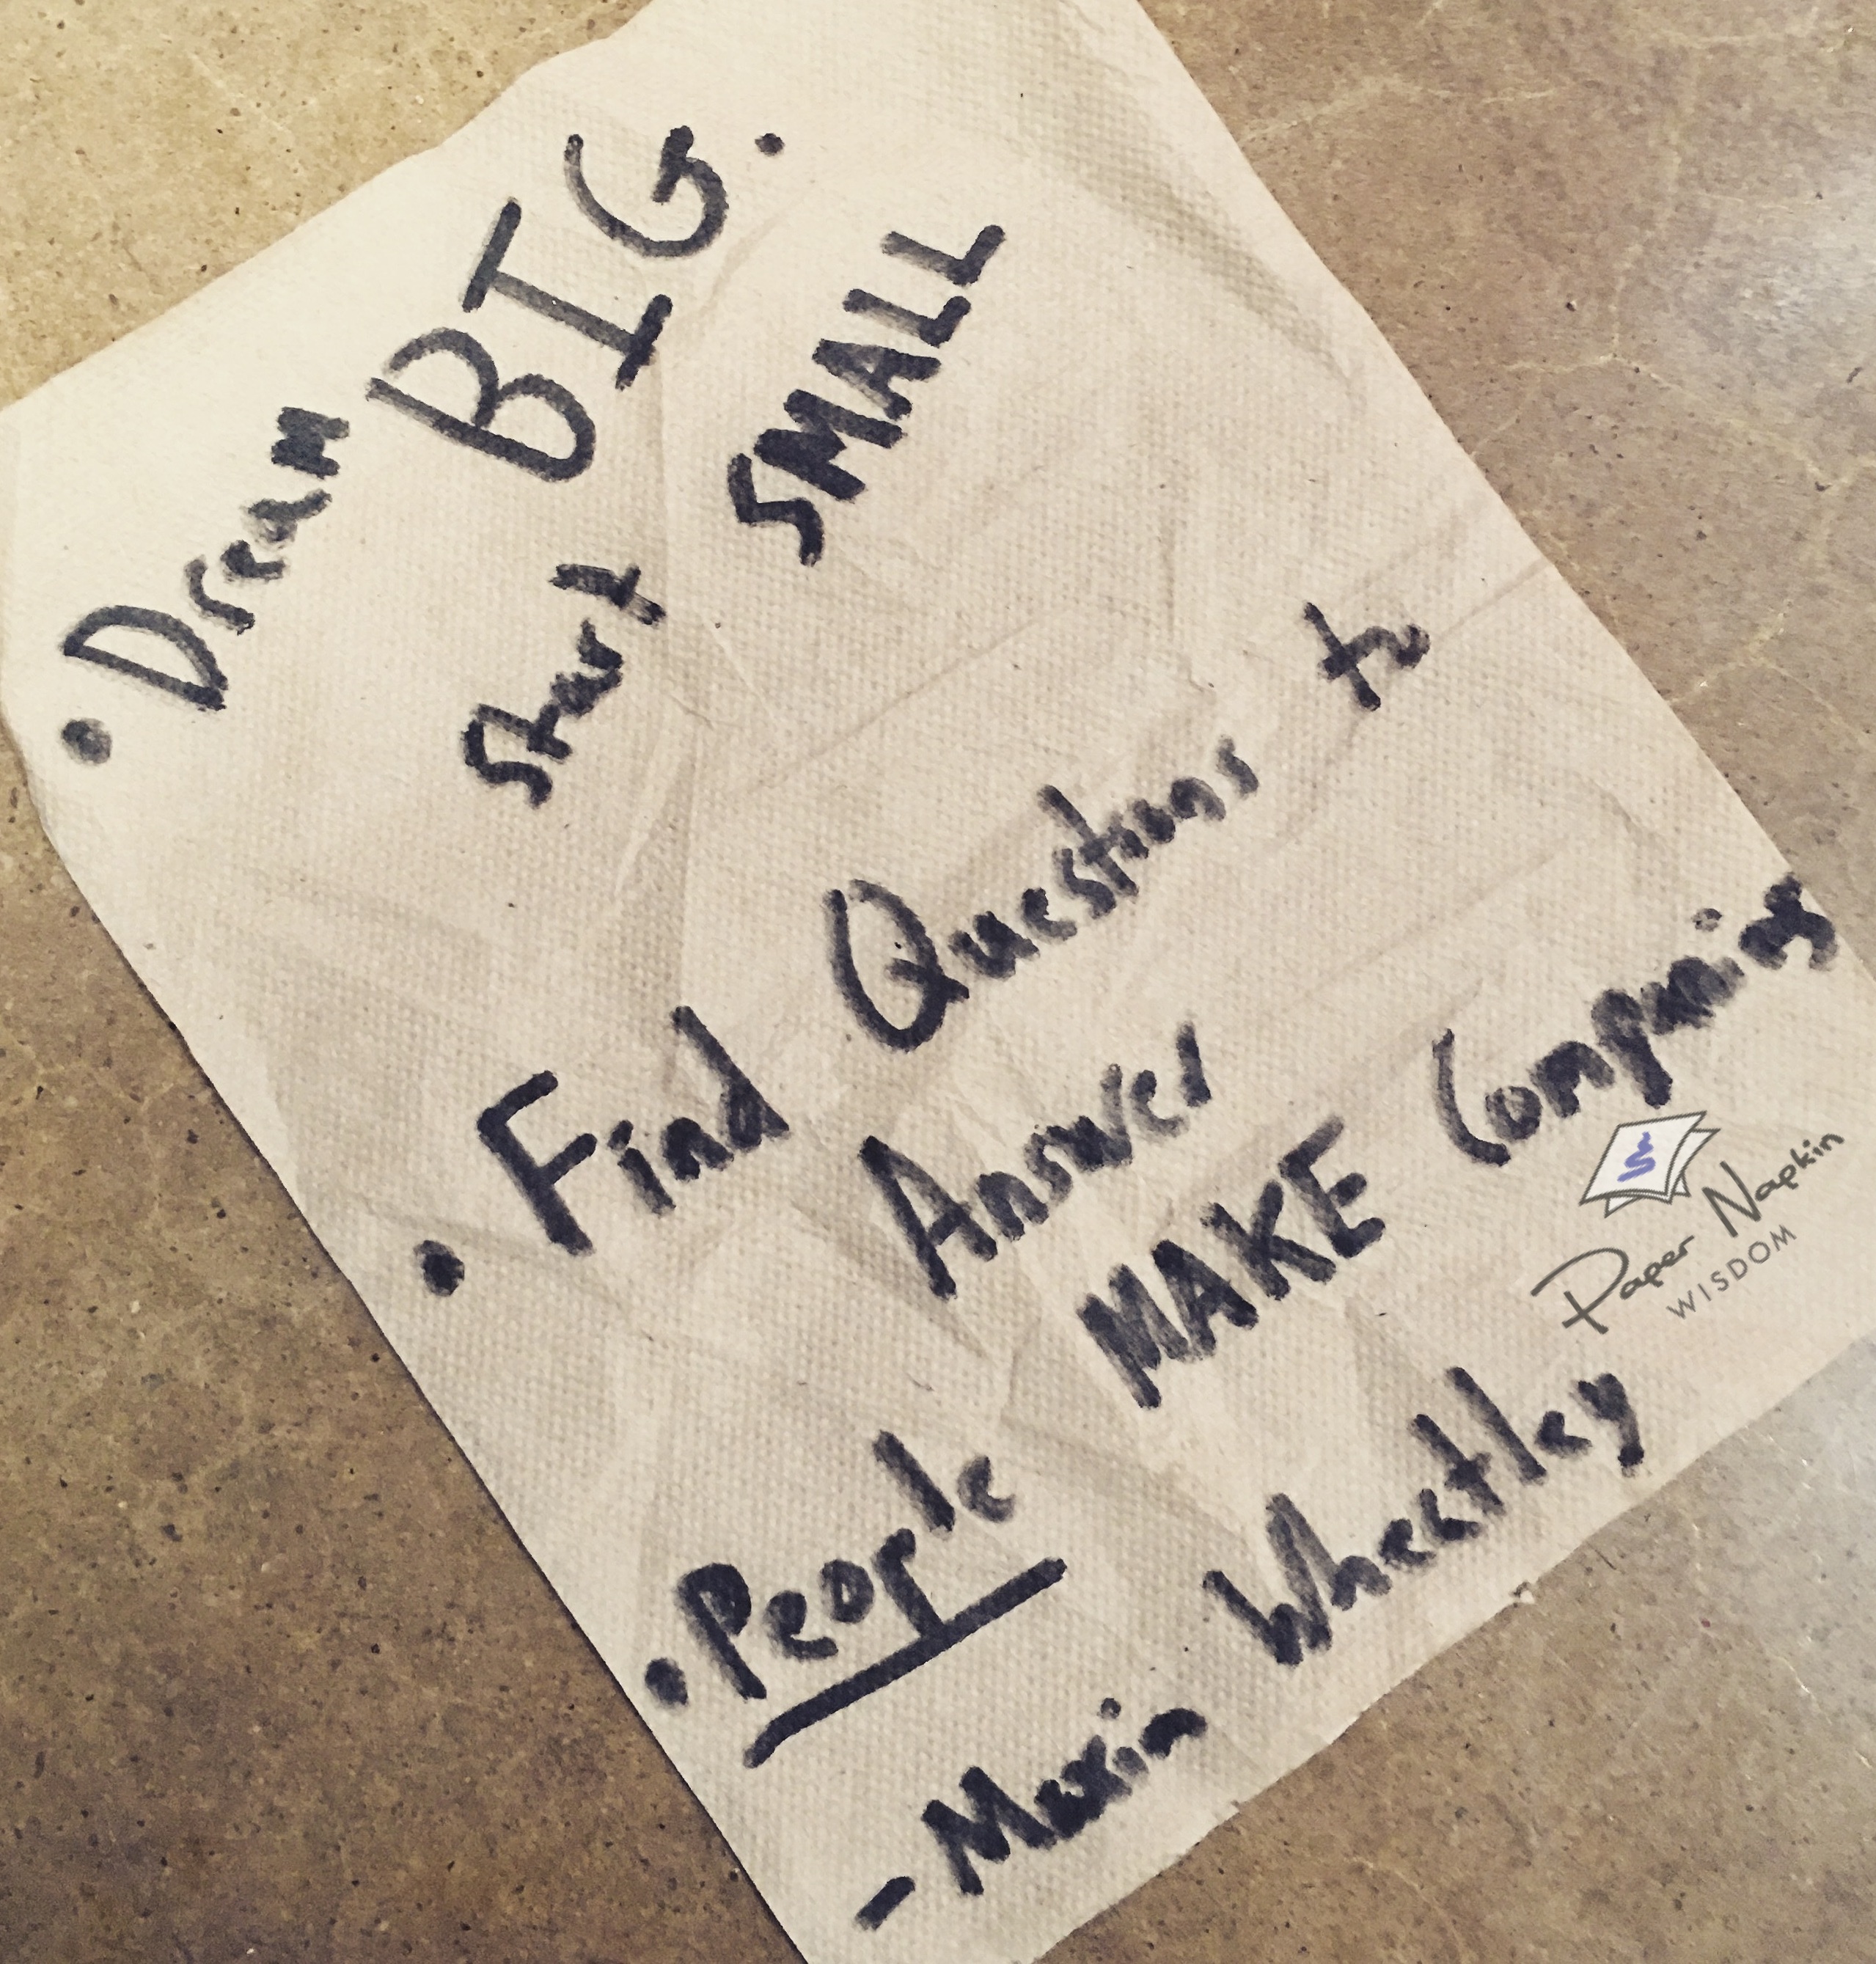 • Dream BIG.
Start SMALL
• Find Questions to
Answer
• People MAKE Companies
- Maxin Wheatley
Paper Napkin
WISDOM